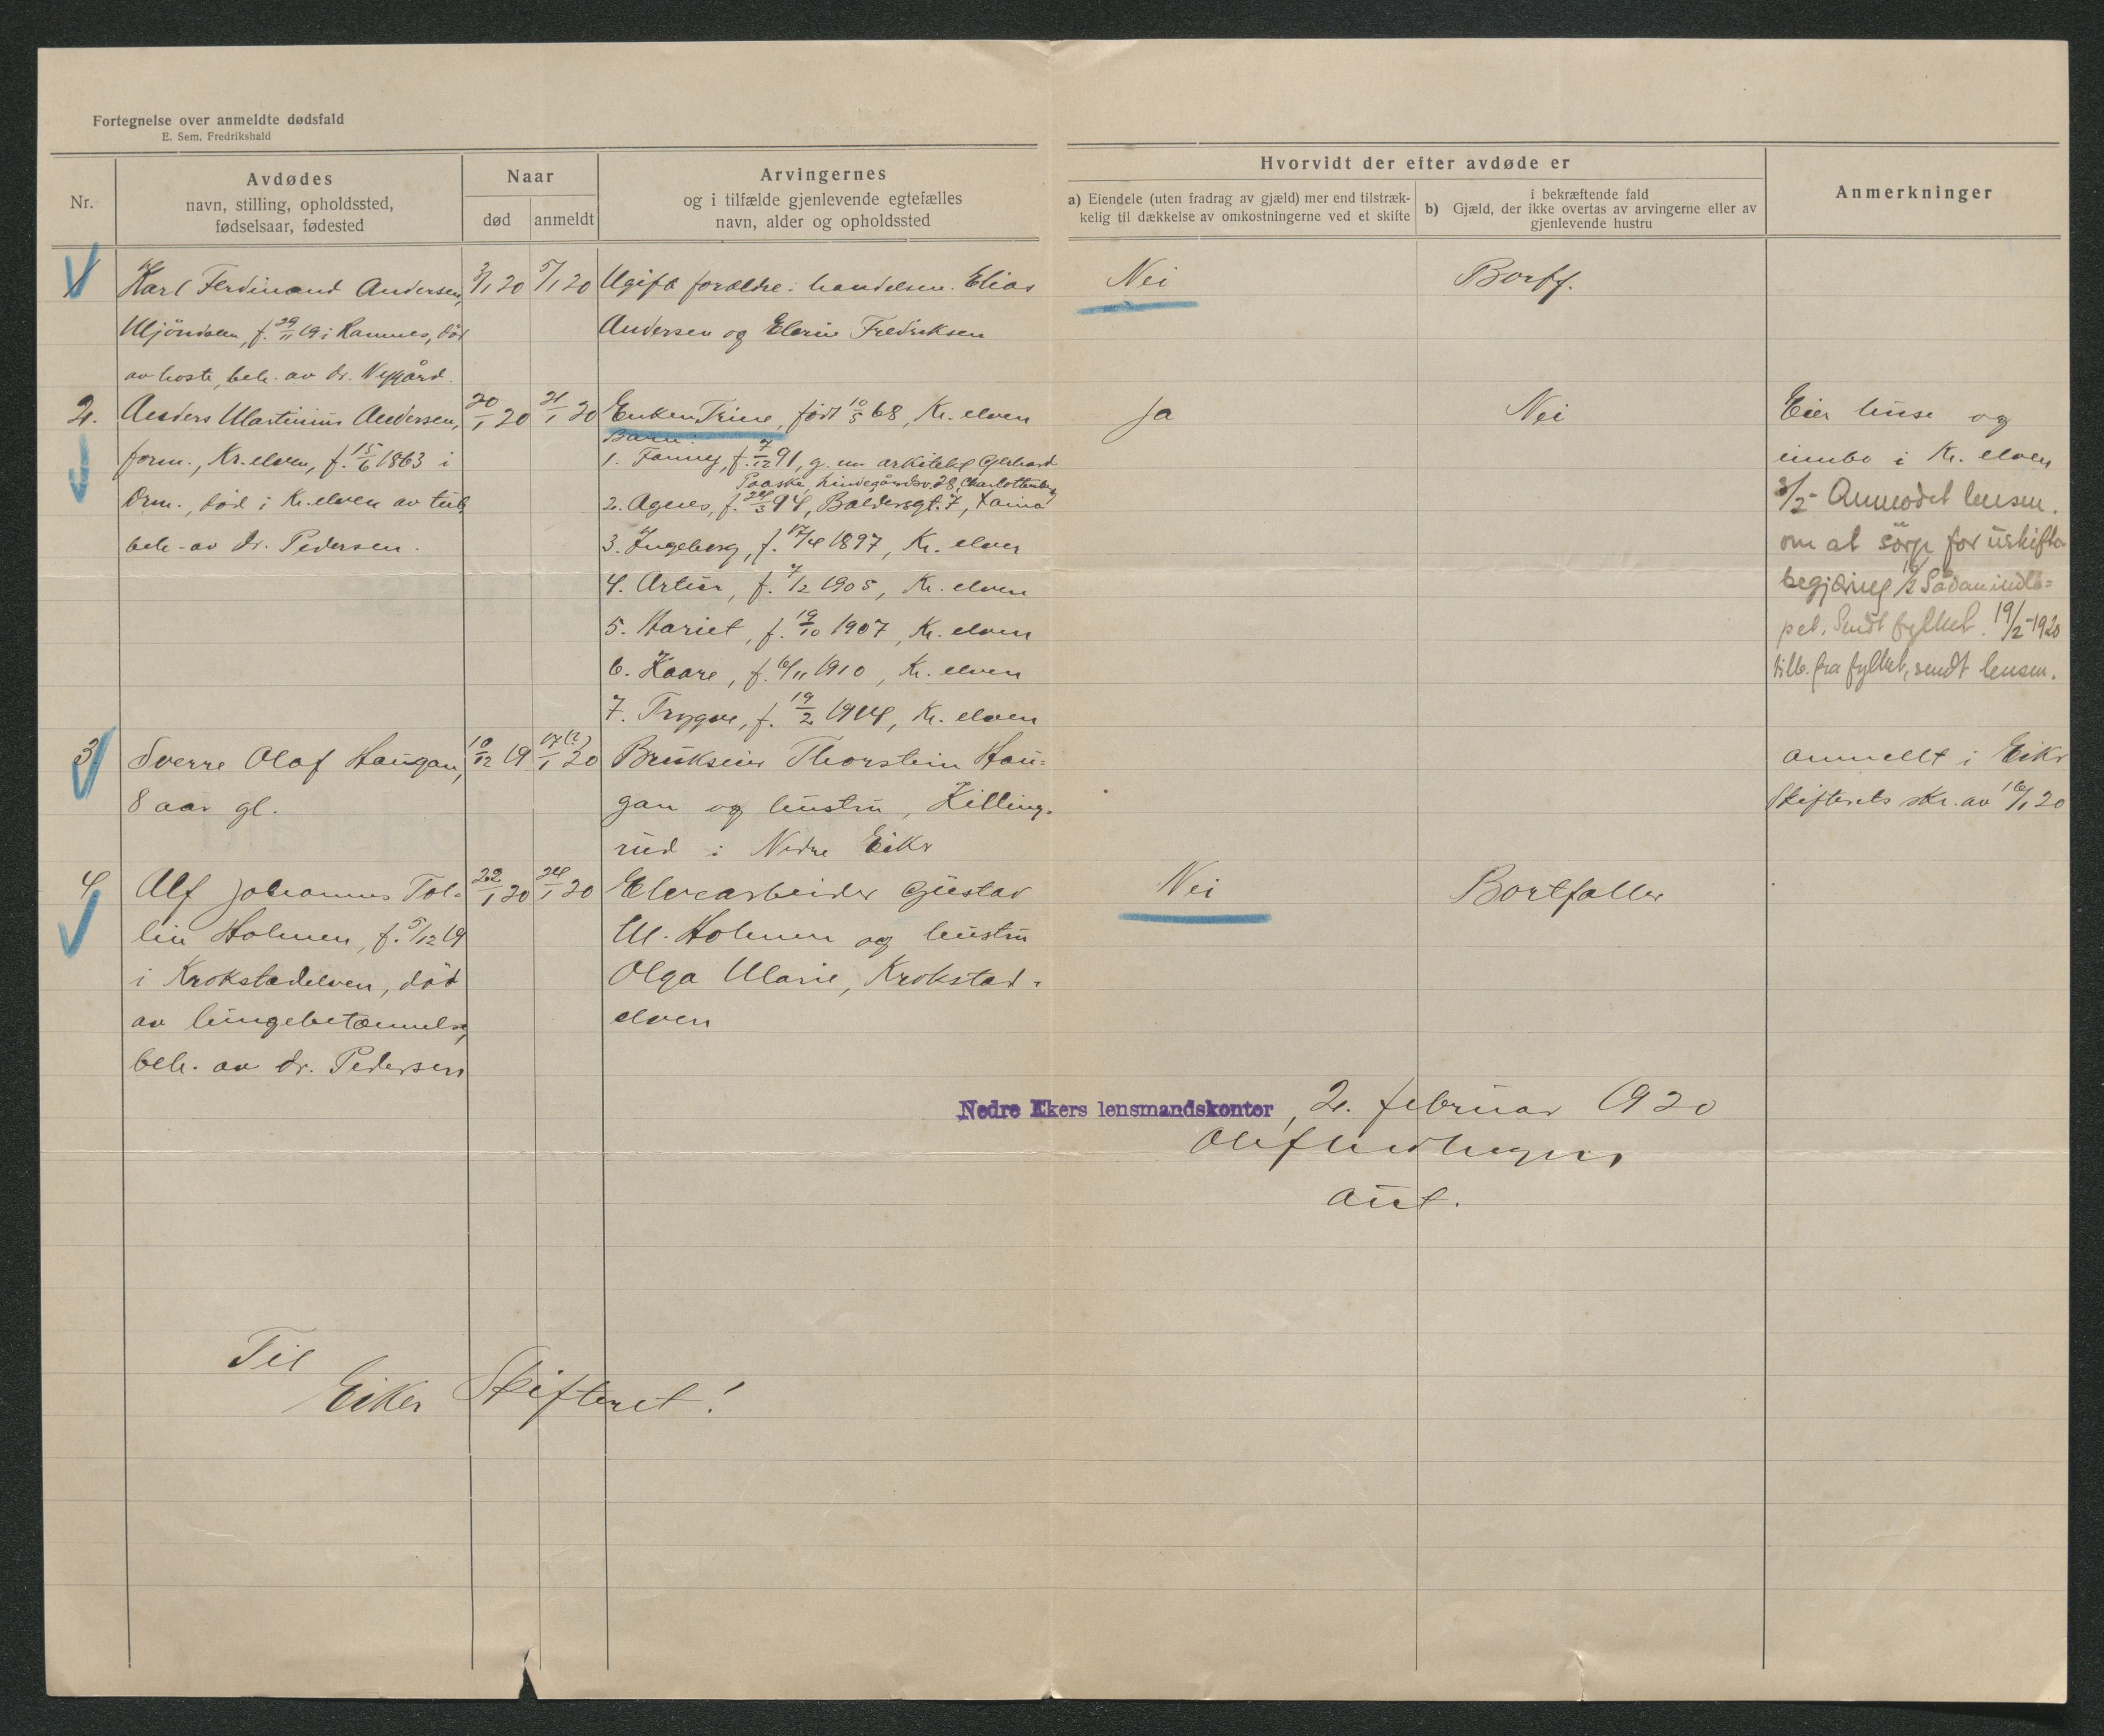 Fortegnelse over anmeldte dødsfald
E. Sem, Fredrikshald
Nr.
Avdødes
navn, stilling, opholdssted,
fødselsaar, fødested
Naar
død
anmeldt
Arvingernes
og i tilfælde gjenlevende egtefælles
navn, alder og opholdssted
Hvorvidt der efter avdøde er
a) Eiendele (uten fradrag av gjæld) mer end tilstræk-
kelig til dækkelse av omkostningerne ved et skifte
i bekræftende fald
b) Gjæld, der ikke overtas av arvingerne eller av
gjenlevende hustru
Anmerkninger
1
Karl Ferdinand Andersen,
Mjöndalen, f. 29/11 19 i Ramnes, död
av hoste, beh. av dr. Nygård.
3/1 20
5/1 20
Ugift forældre: handelsm. Elias
Andersen og Elerin Fredriksen
Nei
Bortf.
2.
Anders Martinius Andersen,
form., Kr.elven, f. 15/6 1863 i
Drm., död i Kr.elven av tub
beh. av dr. Pedersen.
20/1 20
21/1 20
Enken Trine, födt 10/5 68, Kr. elven
Barn:
1. Fanny, f. 7/12 91, g. m. arkitekt Gerhard
Paaske, Lindegårdsv. 28, Charlottenberg
2. Agnes, f. 24/3 94, Baldersgt. 7, Xania
3. Ingeborg, f. 17/4 1897, Kr. elven
4. Artur, f. 7/2 1905, Kr. elven
5. Hariet, f. 19/10 1907, Kr. elven
6. Kaare, f. 6/11 1910, Kr. elven
7. Trygve, f. 19/2 1914, Kr. elven
Ja
Nei
Eier huse og
innbo i Kr. elven
3/2 - Anmodet lensm.
om at sörge for uskifte-
begjæring 16/2 Sådan indlö-
pet. Sendt fylket. 19/2-1920
tilb. fra fylket, sendt lensm.
3
Sverre Olaf Haugan,
8 aar gl.
10/12 19
17(?)/1 20
Brukseier Thorstein Hau-
gan og hustru, Killing-
rud i Nedre Eiker
anmeldt i Eiker
Skifterets skr. av 16/1 20
4
Alf Johannes Tol-
lin Holmen, f. 5/12 19
i Krokstadelven, död
av lungebetænnelse,
beh. av dr. Pedersen
22/1 20
24/1 20
Elvearbeider Gustav
M. Holmen og hustru
Olga Marie, Krokstad-
elven
Nei
Bortfaller
Nedre Ekers lensmandskontor, 2. februar 1920
aut.
Til
Eiker Skifteret!